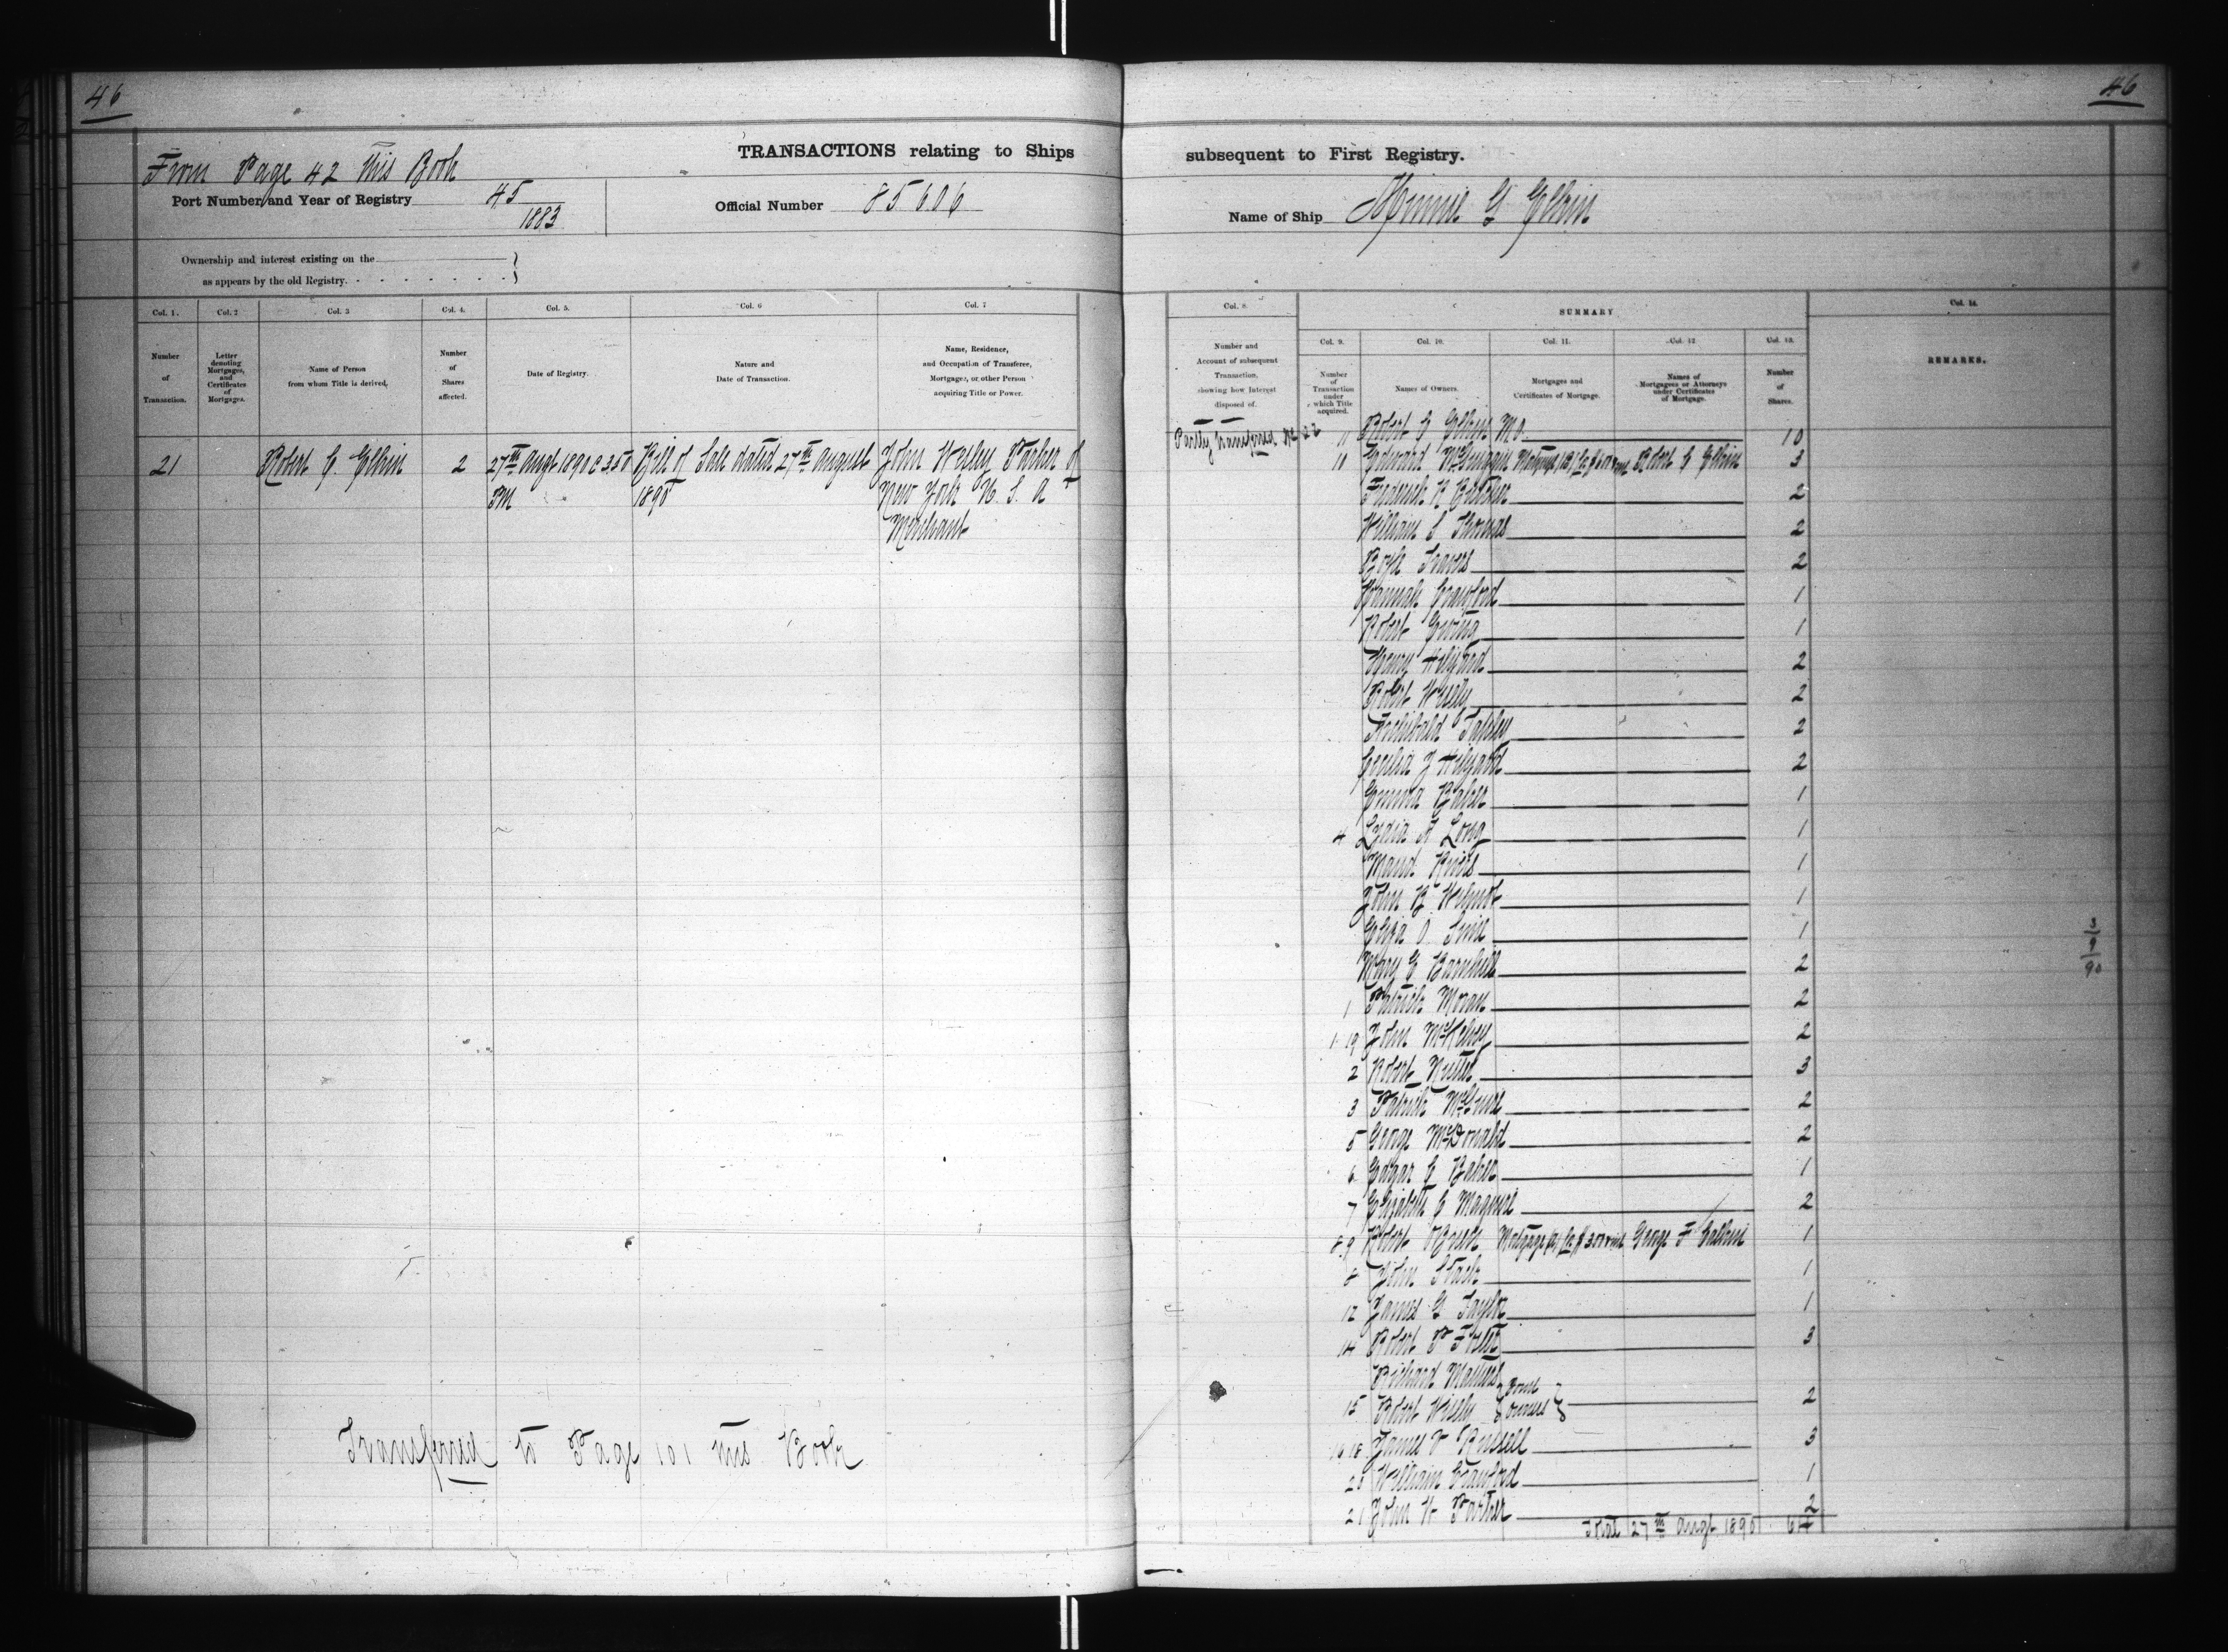 46
46
TRANSACTIONS relating to Ships subsequent to First Registry.
From Page 42 this Book
Port Number and Year of Registry 45/1883
Official Number 85606
Name of Ship Minnie G Elkin
Ownership and interest existing on the
as appears by the old Registry.
Col. 1. Col. 2 Col. 3 Col. 4. Col. 5. Col. 6 Col. 7
Number of Transaction.
Letter denoting Mortgages, and Certificates of Mortgages.
Name of Person from whom Title is derived.
Number of Shares affected.
Date of Registry.
Nature and Date of Transaction.
Name, Residence, and Occupation of Transferee, Mortgagee, or other Person acquiring Title or Power.
21 Robert C. Elkin 2 27th Augt 1890 @ 3.50 Bill of Sale dated 27th august John Wesley Parker of
PM 1890 New York U. S. A
Merchant
Transferred to Page 101 this Book
Col. 8. SUMMARY Col. 14.
Number and Account of subsequent Transaction, showing how Interest disposed of.
Col. 9. Col. 10. Col. 11. Col. 12 Col. 13.
Number of Transaction under which Title acquired.
Names of Owners.
Mortgages and Certificates of Mortgage.
Names of Mortgagees or Attorneys under Certificates of Mortgage.
Number of Shares.
REMARKS.
Partly transferred No 22
11 Robert C Elkin Mo. 10
10 Edward Mortgage (B) Robert C Elkin 3
Frederick R 2
William S Thomas 2
Boyle Travers 2
Hannah Crawford 1
Robert Ewing 1
Henry Hilyard 2
Robert Wisely 2
Archibald Tapley 2
Cecilia J Hilyard 2
Emma Baker 1
4 Lydia A Long 1
Maud 1
John B Wilmot 1
Eliza O 1
Mary E Barnhill 2
1 Patrick Moran 2
1 19 John McKelvey 2
2 Robert 3
3 Patrick 2
5 George McDonald 2
6 Edgar C Baker 1
7 Elizabeth C 2
8.9 Robert OBrien Mortgage (A) for $3000 George F 1
8 John Stack 1
12 James G Taylor 1
14 Robert P Foster 3
Richard
15 Robert Wisely Joint owners 2
16 18 James V Russell 3
20 William Crawford 1
21 John W Parker 2
Total 27th Augt 1890 64
3/9/90